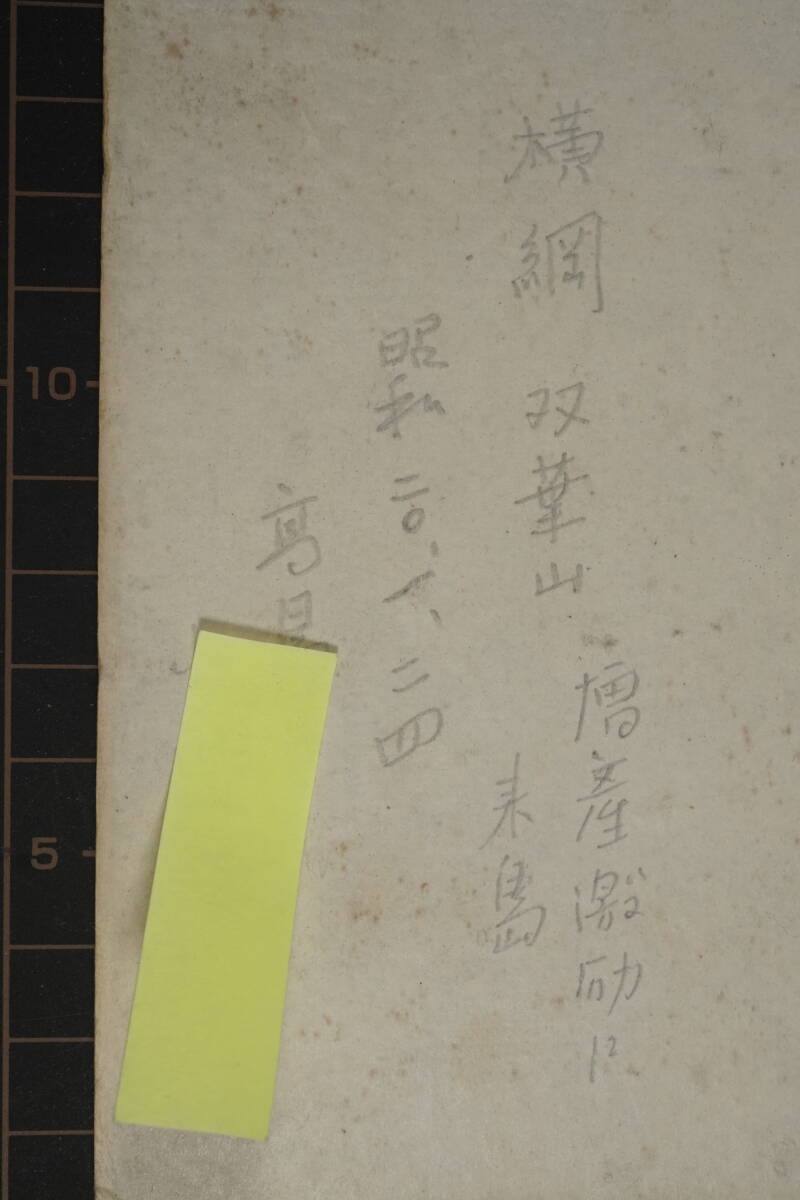 横綱 双葉山
増産激励に
来島
昭和二〇、六、二四
高
10
5